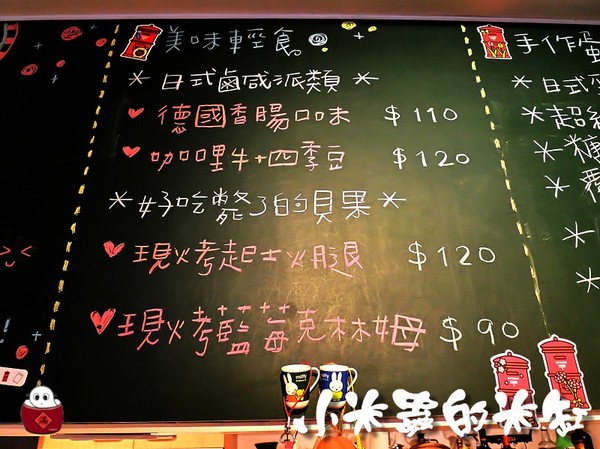 美味輕食
* 日式鹹派類 *
德國香腸口味 $110
咖哩牛+四季豆 $120
*好吃斃了的貝果*
現烤起士火腿 $120
現烤藍莓克林姆 $90
手作蛋
*日式
*超
*糖
*
*
*
小米蟲的米缸